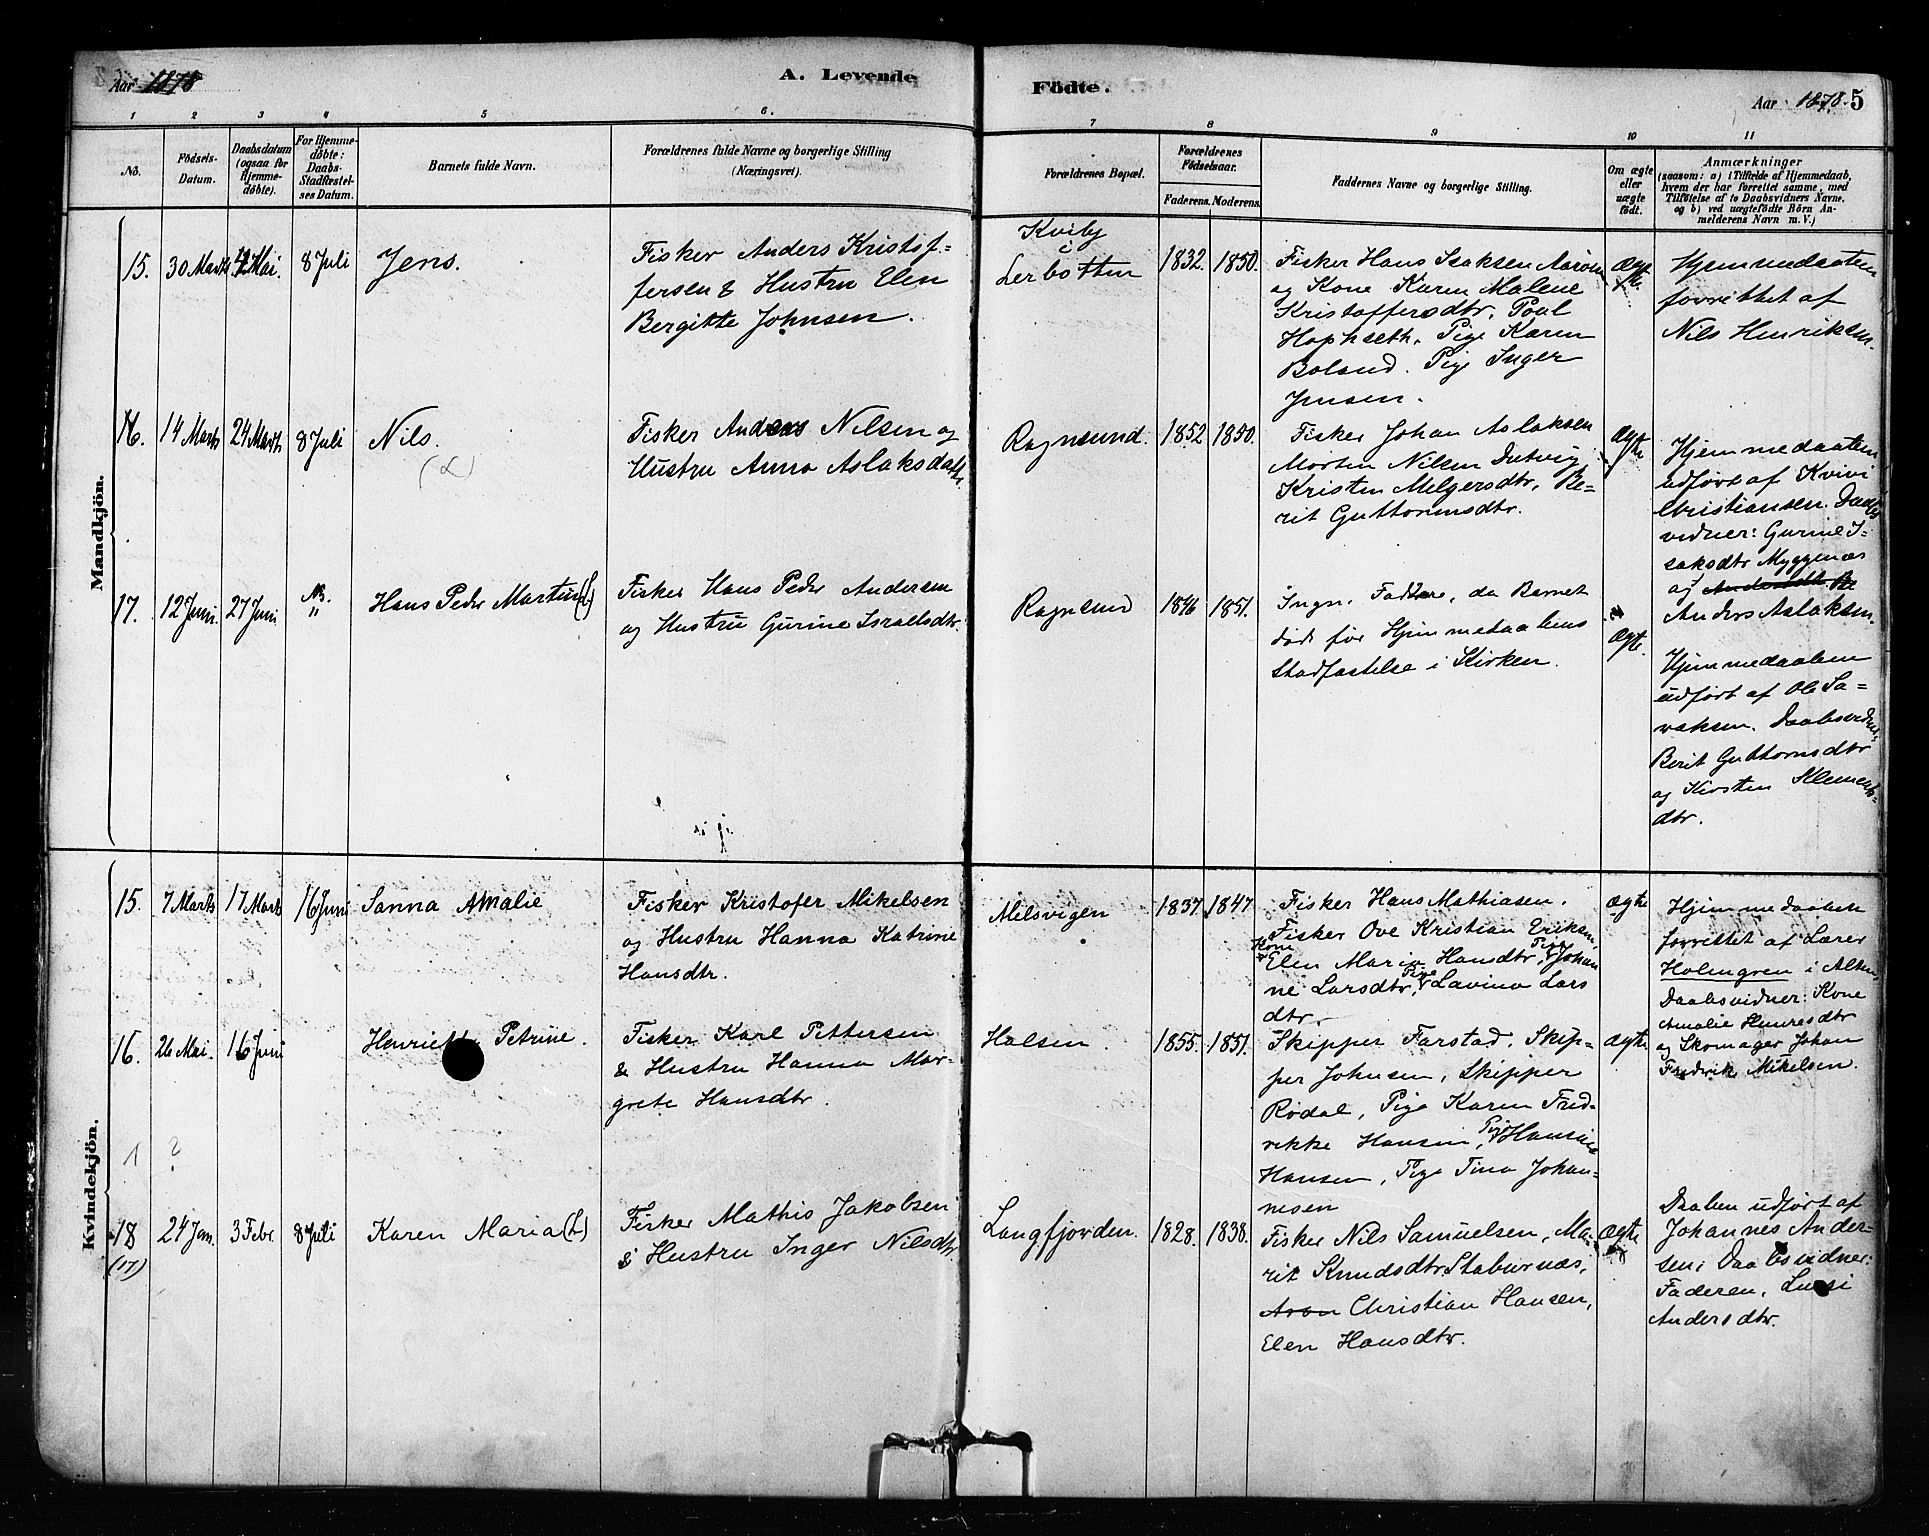 Aar 1878
A. Levende
Födte.
Aar 1878. 5
1 2 3 4 5 6. 7 8 9 10 11
No. Födsels-Datum. Daabsdatum (ogsaa for Hjemme-döbte). For Hjemme-döbte: Daabs-Stadfæstel-ses Datum. Barnets fulde Navn. Forældrenes fulde Navne og borgerlige Stilling (Næringsvei). Forældrenes Bopæl. Forældrenes Födselsaar. Faderens. Moderens. Faddernes Navne og borgerlige Stilling. Om ægte eller uægte födt.
Anmærkninger
(saasom: a) i Tilfælde af Hjemmedaab,
hvem der har forrettet samme, med
Tilföielse af to Daabsvidners Navne,
og b) ved uægtefödte Börn An-
melderens Navn m. V.)
Mandkjön.
15. 30 Marts Mai. 8 Juli Jens.
Fisker Anders Kristof-
fersen & Hustru Elen
Bergitte Johnsen.
Kviby
i
Lerbotten
1832. 1850.
Fisker Hans Isaksen
og Kone Karen Malene
Kristoffersdtr, Poul
Hophseth, Pige Karen
Boland. Pige Inger
Jensen.
Ægte.
Hjemmedaaben
forrettet af
Nils Henriksen.
16. 14 Marts 24 Marts 8 Juli Nils.
Fisker Anders Nilsen og
Hustru Anna Aslaksdatr.
Ragnsund. 1852 1850.
Fisker Johan Aslaksen
Morten Nilsen
Kristen Melgersdtr, Be-
rit Guttormsdtr.
Ægte
Hjemmedaaben
udført af Kvivi
Christiansen. Daabs
vidner: Gurine I-
saksdtr Myggenæs
og
Anders Aslaksen.
17. 12 Juni. 27 Juni NB. " Hans Peder Martin (L)
Fisker Hans Peder Andersen
og Hustru Gurine Israelsdtr.
Ragnsund 1846 1851.
Ingn. Faddere, da Barnet
døde før Hjemmedaabens
Stadfæstelse i Kirken.
Ægte.
Hjemmedaaben
udført af Ole Sa-
raksen. Daabsvidner:
Berit Guttormsdtr
og Kirsten Klements-
dtr.
Kvindekjön.
15. 7 Marts 17 Marts 16 Juni Sanna Amalie
Fisker Kristofer Mikelsen
og Hustru Hanna Katrine
Hansdtr.
Melsvigen 1837. 1847.
Fisker Hans Mathiasen.
Fisker Ove Kristian Eriksen,
Kone Elen Maria Hansdtr, Pige Johan
ne Larsdtr, Pige Lavina Lars
dtr.
Ægte
Hjemmedaaben
forrettet af Lærer
Holmgren i Alten,
Daabsvidner: Kone
Amalie Henresdtr
og Skomager Johan
Fredrik Mikelsen.
16. 26 Mai. 16 Juni Henriette Petrine.
Fisker Karl Pettersen
& Hustru Hanna Mar-
grete Hansdtr.
Halsen. 1855. 1851.
Skipper Farstad, Skip-
per Johnsen, Skipper
Rødal, Pige Karen Fred-
rikke Hansen, Pige Hansine
Hansen, Pige Tina Johan-
nesen
Ægte
1 ?
18 (17) 24 Jan. 3 Febr. 8 Juli Karen Maria (L)
Fisker Mathis Jakobsen
& Hustru Inger Nilsdtr.
Langfjorden. 1828. 1838.
Fisker Nils Samuelsen, Ma-
rit Knudsdtr Stabursnæs,
Aron Christian Hansen,
Elen Hansdtr.
Ægte
Daaben udført af
Johannes Ander-
sen; Daabsvidner:
Faderen, Lussi
Andersdtr.